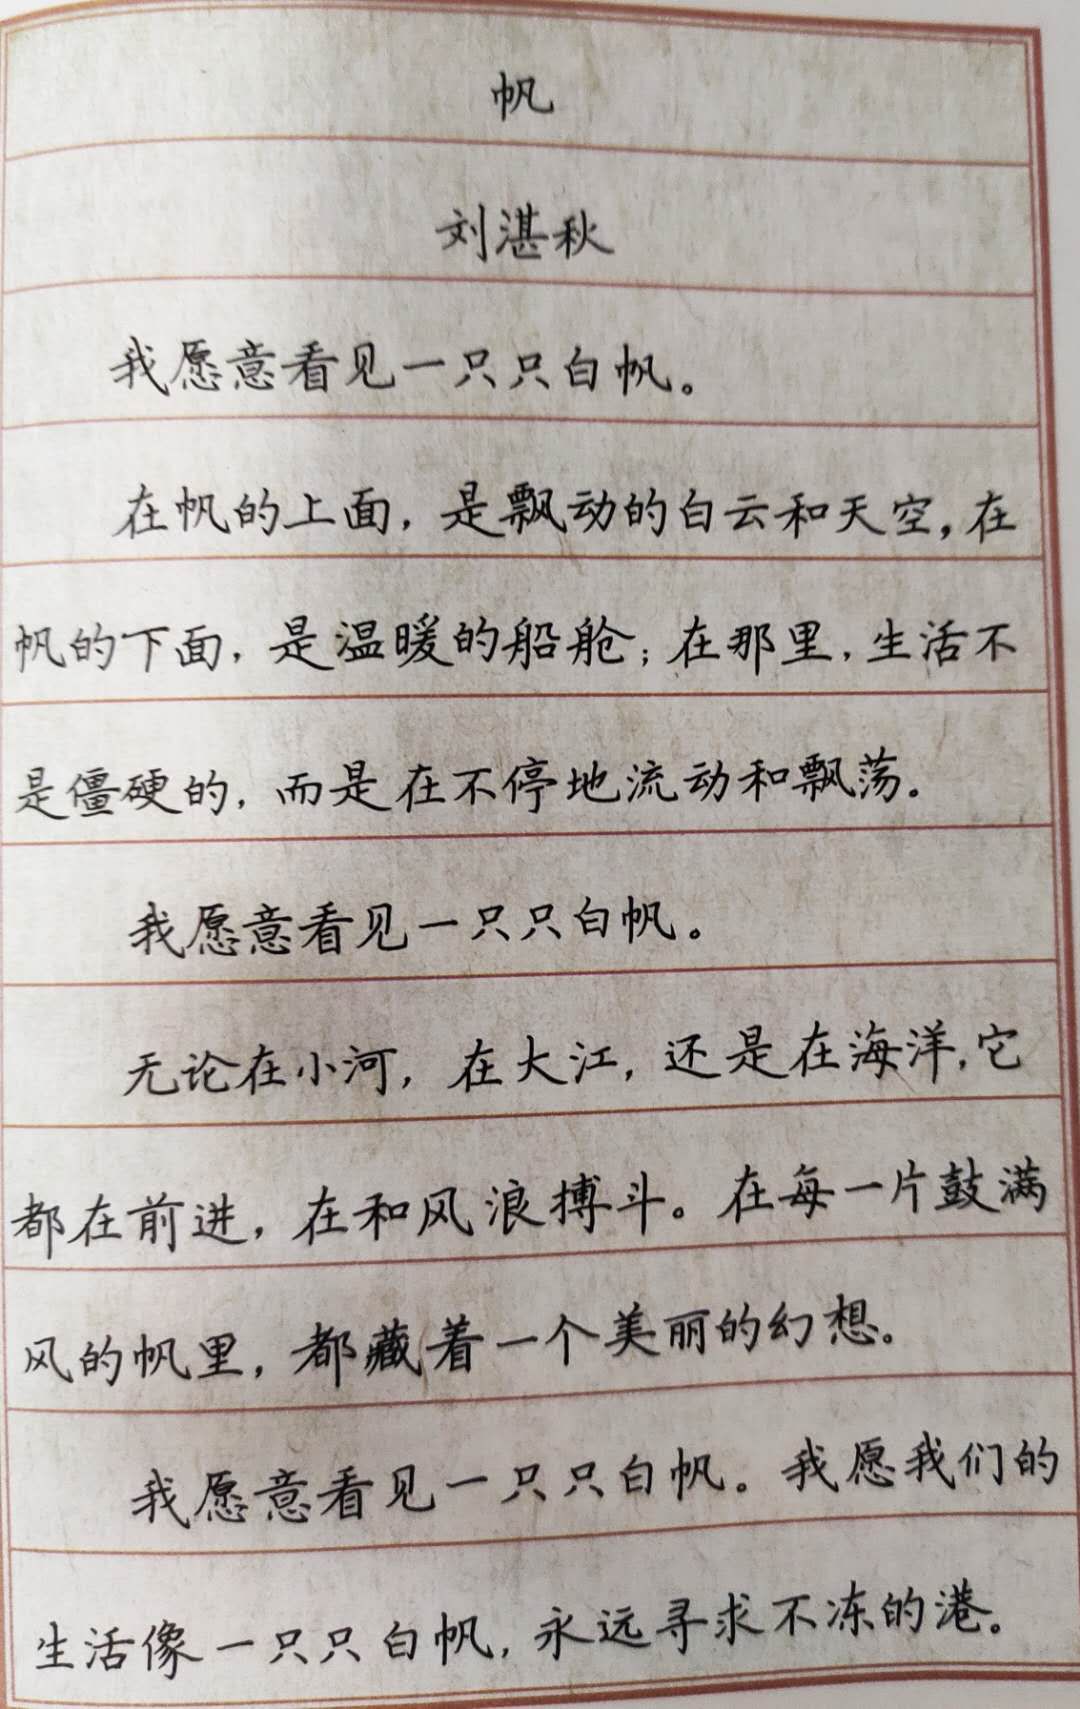 帆
刘湛秋
我愿意看见一只只白帆。
在帆的上面，是飘动的白云和天空，在
帆的下面，是温暖的船舱；在那里，生活不
是僵硬的，而是在不停地流动和飘荡。
我愿意看见一只只白帆。
无论在小河，在大江，还是在海洋，它
都在前进，在和风浪搏斗。在每一片鼓满
风的帆里，都藏着一个美丽的幻想。
我愿意看见一只只白帆。我愿我们的
生活像一只只白帆，永远寻求不冻的港。